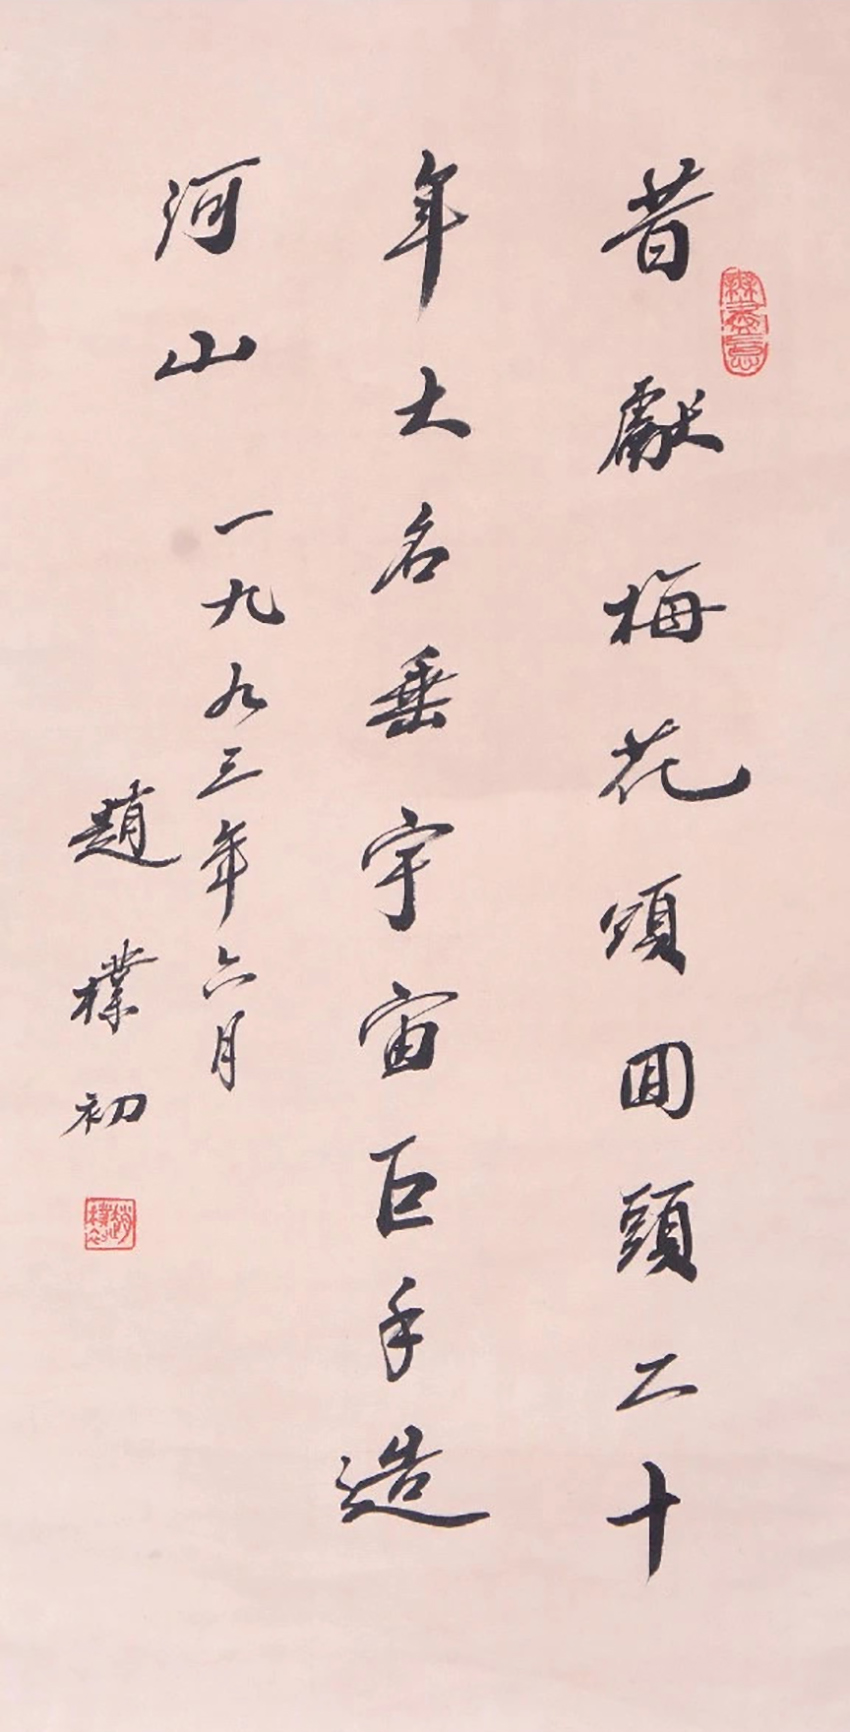 昔獻梅花頌囬頭二十
年大名垂宇宙巨手造
河山
一九九三年六月
趙樸初